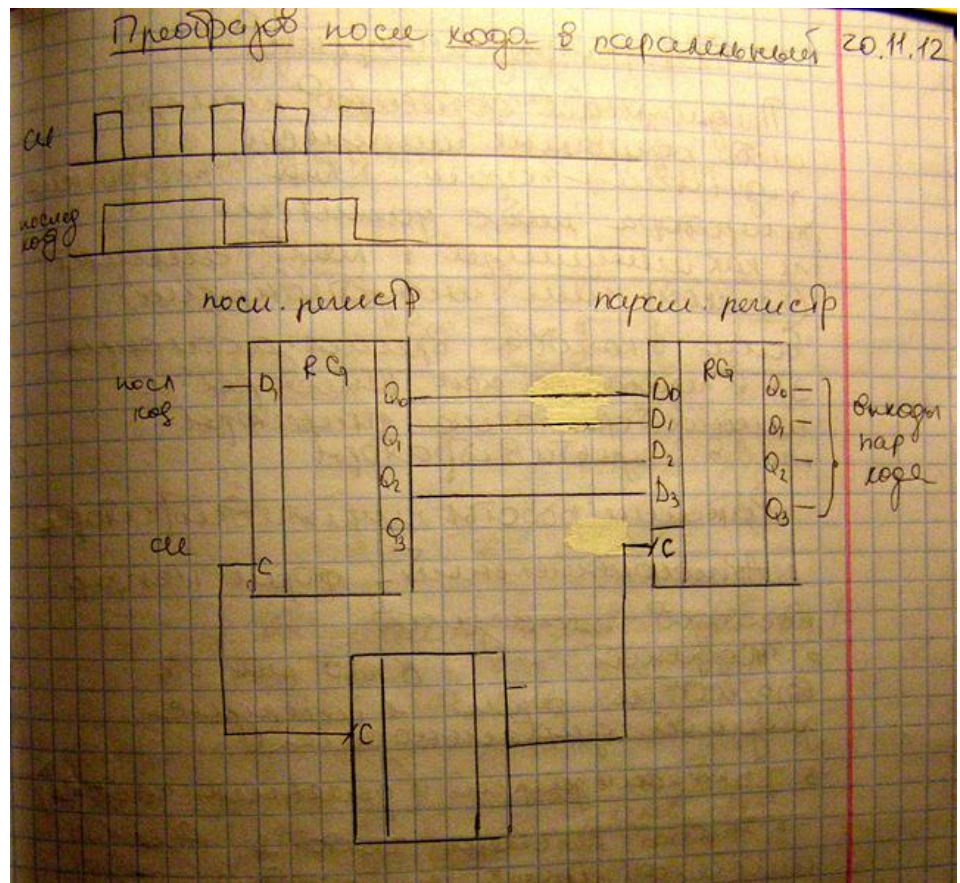 Преобразов после кода в паралельный 20.11.12
си
послед
код
посл. регистр
парал. регистр
посл
код
D₁
RG
Q₀
Q₁
Q₂
Q₃
си
C
D₀
D₁
D₂
D₃
C
RG
Q₀
Q₁
Q₂
Q₃
выходы
пар
кода
C